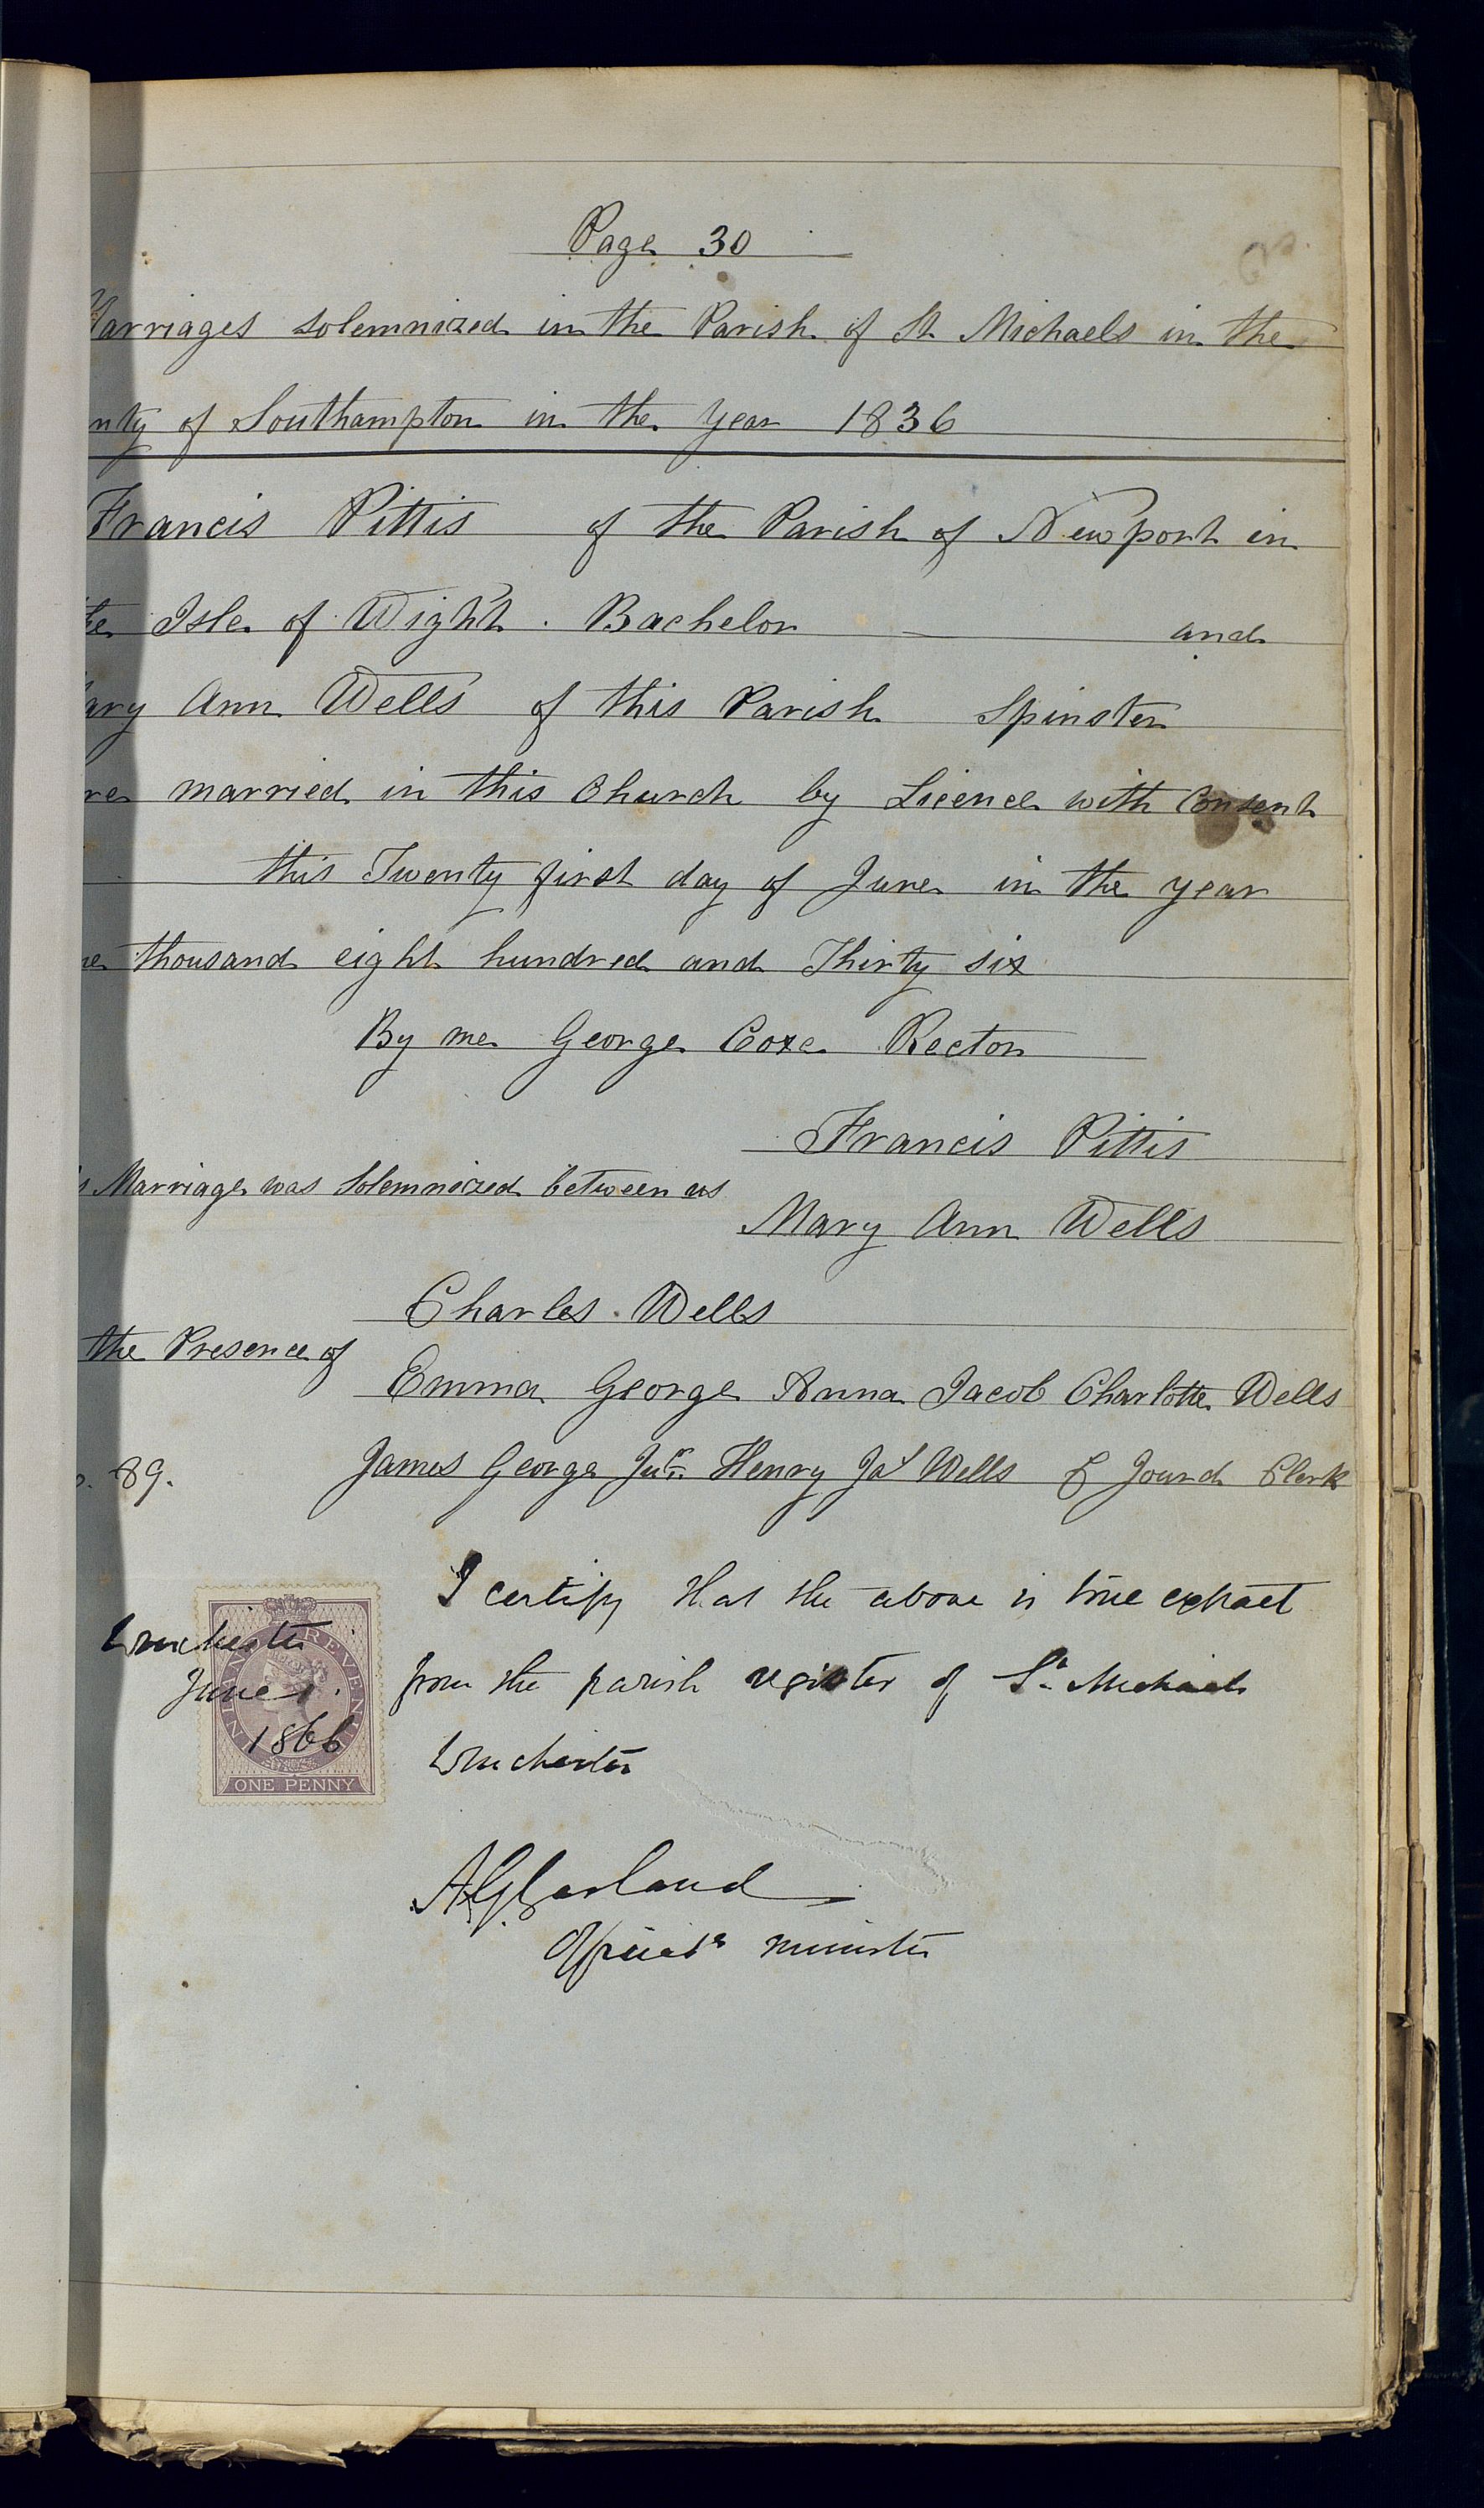 Page 30
Marriages solemnized in the Parish of St Michaels in the
nty of Southampton in the Year 1836
Francis Pittis of the Parish of Newport in
the Isle of Wight. Bachelor and
ary Ann Wells of this Parish Spinster
re married in this Church by Licence with Consent
this Twenty first day of June in the year
ne thousand eight hundred and Thirty six
By me George Coxe Rector
Francis Pittis
s Marriage was Solemnized between us
Mary Ann Wells
Charles Wells
the Presence of
Emma George Anna Jacob Charlotte Wells
James George Junr. Henry Jas Wells Clerk
o. 89.
I certify that the above is true extract
from the parish register of St. Michaels
Winchester
Winchester
June 1.
1866
INLAND REVENUE
ONE PENNY
Officiatg minister